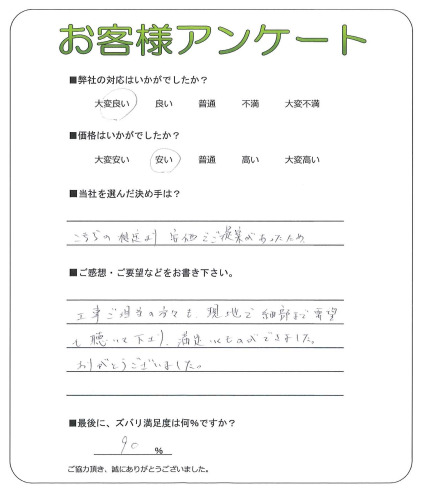 お客様アンケート
■弊社の対応はいかがでしたか？
大変良い 良い 普通 不満 大変不満
■価格はいかがでしたか？
大変安い 安い 普通 高い 大変高い
■当社を選んだ決め手は？
こちらの想定より安価でご提案があったため
■ご感想・ご要望などをお書き下さい。
工事ご担当の方々も、現地で細部まで要望
も聴いて下さり、満足いくものができました。
ありがとうございました。
■最後に、ズバリ満足度は何％ですか？
90 ％
ご協力頂き、誠にありがとうございました。